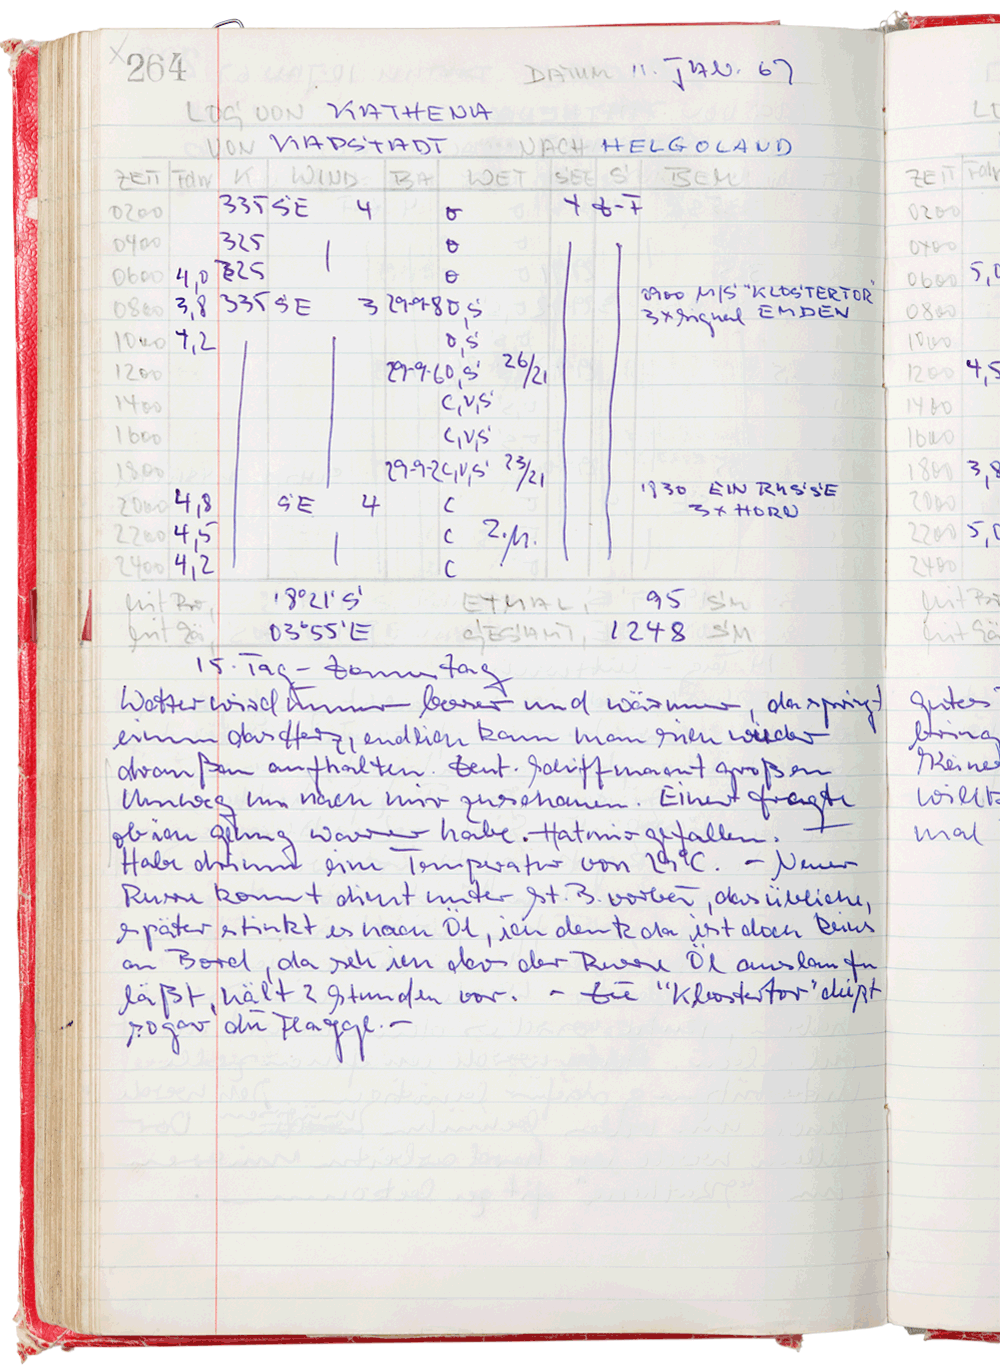 264 DATUM 11. JAN. 67
LOG VON KATHENA
VON KAPSTADT NACH HELGOLAND
ZEIT Fdw K WIND BA WET SEE S BEM
0200 335 SE 4 o 4
0400 325 o
0600 4,0 325 o
0800 3,8 335 SE 3 29-9-8 o,s 0900 M/S "KLOSTERTOR"
3x Signal EMDEN
1000 4,2 o,s
1200 29-9-6 o,s 26/21
1400 c,v,s
1600 c,v,s
1800 29-9-2 c,v,s 23/21
1930 EIN RUSSE
2000 4,8 SE 4 c 3x HORN
2200 4,5 c
2400 4,2 c
18°21'S ETMAL, 95 SM
03°55'E GESAMT, 1248 SM
15. Tag - Sonntag
Wetter wird immer besser und wärmer, da springt
einem das Herz, endlich kann man sich wieder
draußen aufhalten. Deut. Schiff macht großen
Umweg um nach mir zuschauen. Einer fragte
ob ich genug Wasser habe. Hat mir gefallen. -
Habe drinnen eine Temperatur von 29°C. - Neuer
Russe kommt dicht unter St. B. vorbei, das übliche,
später stinkt es nach Öl, ich denk da ist doch keins
an Bord, da seh ich das der Russe Öl auslaufen
läßt, hält 2 Stunden vor. - Die "Klostertor" dippt
sogar die Flagge. -
ZEIT Fdw
0200
0400
0600 5,0
0800
1000
1200 4,5
1400
1600
1800 3,8
2000
2200 5,0
2400
gutes
Keine
mal